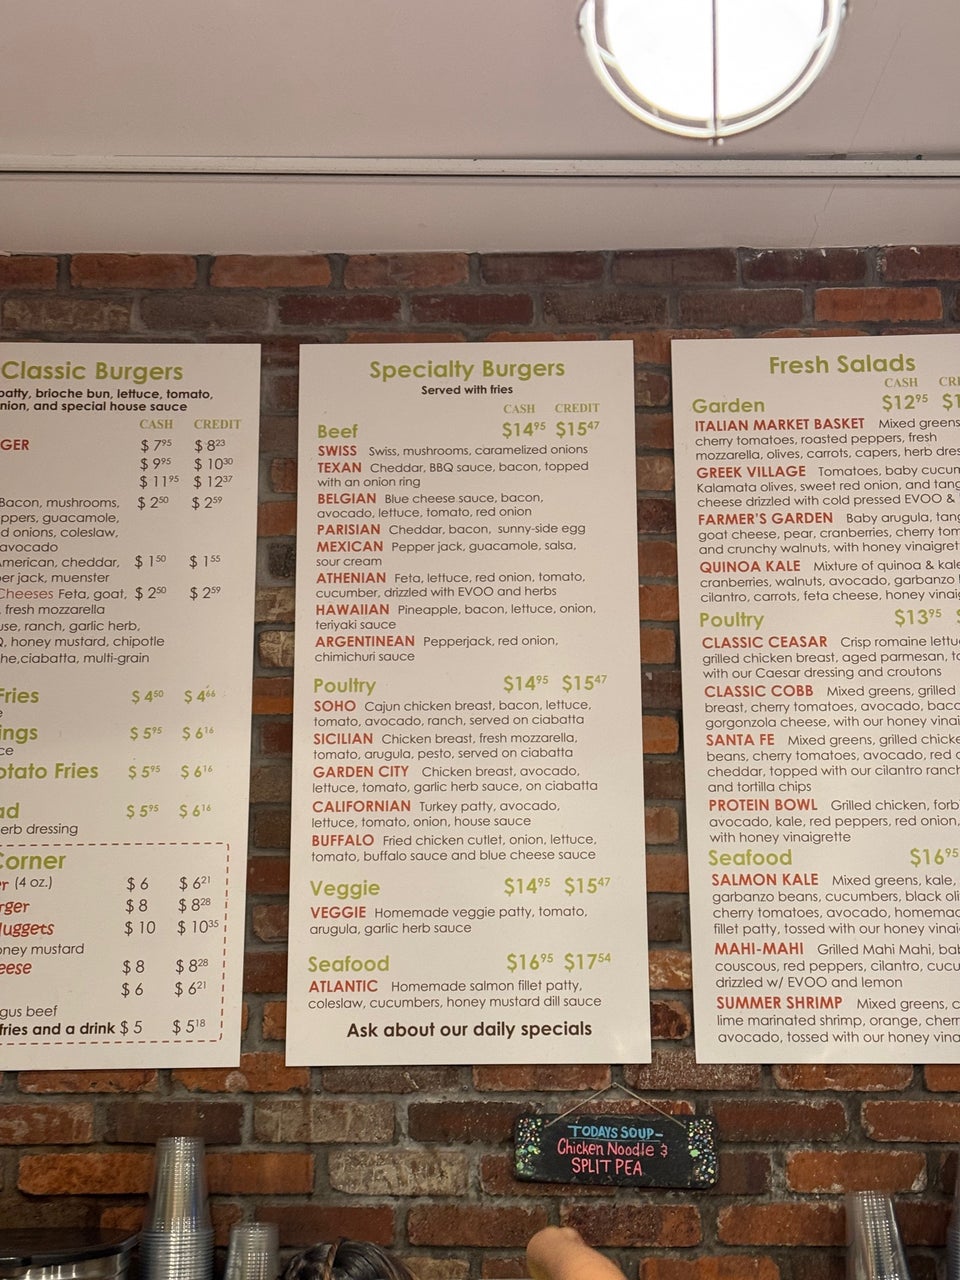 Classic Burgers
patty, brioche bun, lettuce, tomato,
and special house sauce
CASH CREDIT
$ 7⁹⁵ $ 8²³
$ 9⁹⁵ $ 10³⁰
$ 11⁹⁵ $ 12³⁷
Bacon, mushrooms, $ 2⁵⁰ $ 2⁵⁹
guacamole,
onions, coleslaw,
avocado
cheddar, $ 1⁵⁰ $ 1⁵⁵
jack, muenster
Cheeses Feta, goat, $ 2⁵⁰ $ 2⁵⁹
fresh mozzarella
ranch, garlic herb,
honey mustard, chipotle
ciabatta, multi-grain
Fries $ 4⁵⁰ $ 4⁶⁶
$ 5⁹⁵ $ 6¹⁶
Fries $ 5⁹⁵ $ 6¹⁶
$ 5⁹⁵ $ 6¹⁶
dressing
Corner
(4 oz.) $ 6 $ 6²¹
$ 8 $ 8²⁸
$ 10 $ 10³⁵
mustard
$ 8 $ 8²⁸
$ 6 $ 6²¹
beef
fries and a drink $ 5 $ 5¹⁸
Specialty Burgers
Served with fries
CASH CREDIT
Beef $14⁹⁵ $15⁴⁷
SWISS Swiss, mushrooms, caramelized onions
TEXAN Cheddar, BBQ sauce, bacon, topped
with an onion ring
BELGIAN Blue cheese sauce, bacon,
avocado, lettuce, tomato, red onion
PARISIAN Cheddar, bacon, sunny-side egg
MEXICAN Pepper jack, guacamole, salsa,
sour cream
ATHENIAN Feta, lettuce, red onion, tomato,
cucumber, drizzled with EVOO and herbs
HAWAIIAN Pineapple, bacon, lettuce, onion,
teriyaki sauce
ARGENTINEAN Pepperjack, red onion,
chimichuri sauce
Poultry $14⁹⁵ $15⁴⁷
SOHO Cajun chicken breast, bacon, lettuce,
tomato, avocado, ranch, served on ciabatta
SICILIAN Chicken breast, fresh mozzarella,
tomato, arugula, pesto, served on ciabatta
GARDEN CITY Chicken breast, avocado,
lettuce, tomato, garlic herb sauce, on ciabatta
CALIFORNIAN Turkey patty, avocado,
lettuce, tomato, onion, house sauce
BUFFALO Fried chicken cutlet, onion, lettuce,
tomato, buffalo sauce and blue cheese sauce
Veggie $14⁹⁵ $15⁴⁷
VEGGIE Homemade veggie patty, tomato,
arugula, garlic herb sauce
Seafood $16⁹⁵ $17⁵⁴
ATLANTIC Homemade salmon fillet patty,
coleslaw, cucumbers, honey mustard dill sauce
Ask about our daily specials
Fresh Salads
CASH
Garden $12⁹⁵
ITALIAN MARKET BASKET Mixed greens
cherry tomatoes, roasted peppers, fresh
mozzarella, olives, carrots, capers, herb
GREEK VILLAGE Tomatoes, baby
Kalamata olives, sweet red onion, and
cheese drizzled with cold pressed EVOO &
FARMER'S GARDEN Baby arugula,
goat cheese, pear, cranberries, cherry
and crunchy walnuts, with honey
QUINOA KALE Mixture of quinoa &
cranberries, walnuts, avocado, garbanzo
cilantro, carrots, feta cheese, honey
Poultry $13⁹⁵
CLASSIC CEASAR Crisp romaine
grilled chicken breast, aged parmesan,
with our Caesar dressing and croutons
CLASSIC COBB Mixed greens, grilled
breast, cherry tomatoes, avocado,
gorgonzola cheese, with our honey
SANTA FE Mixed greens, grilled
beans, cherry tomatoes, avocado, red
cheddar, topped with our cilantro ranch
and tortilla chips
PROTEIN BOWL Grilled chicken,
avocado, kale, red peppers, red onion,
with honey vinaigrette
Seafood $16⁹⁵
SALMON KALE Mixed greens, kale,
garbanzo beans, cucumbers, black
cherry tomatoes, avocado,
fillet patty, tossed with our honey
MAHI-MAHI Grilled Mahi Mahi,
couscous, red peppers, cilantro,
drizzled w/ EVOO and lemon
SUMMER SHRIMP Mixed greens,
lime marinated shrimp, orange,
avocado, tossed with our honey
TODAYS SOUP-
Chicken Noodle &
SPLIT PEA